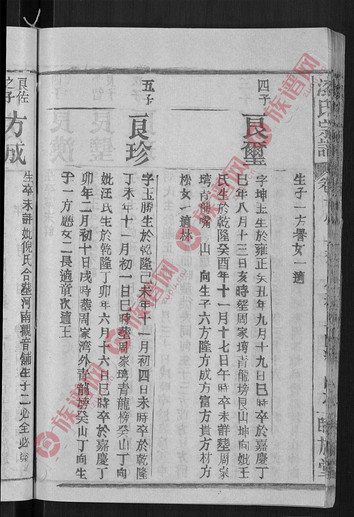 生子一方譽女一適
四子
良璽
字坤玉生於雍正癸丑年九月十九日巳時卒於嘉慶丁
巳年八月十三日亥時塟周家塆青龍嘴艮山坤向妣王
氏生於乾隆癸酉年十一月十七日午時卒未詳塟周家
塆青龍嘴 山 向生子六方隆方成方富方貴方材方
松女一適林
五子
良珍
字玉勝生於乾隆己未年十一月初四日未時卒於乾隆
丁未年十一月初一日巳時塟周家塆青龍嘴癸山丁向
妣汪氏生於乾隆丁卯年六月十六日巳時卒於嘉慶丁
卯年二月初十日戌時塟周家湾外青龍嘴癸山丁向生
子一方懋女二長適童次適王
良佐
之子
方成
生卒未詳妣倪氏合塟河南觀音舖生子二必全必
族谱网